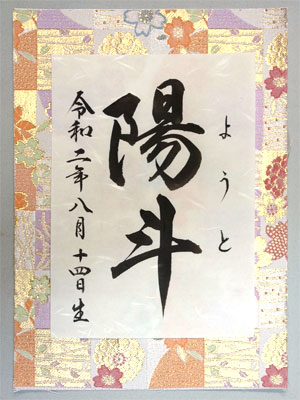 ようと
陽斗
令和二年八月十四日生